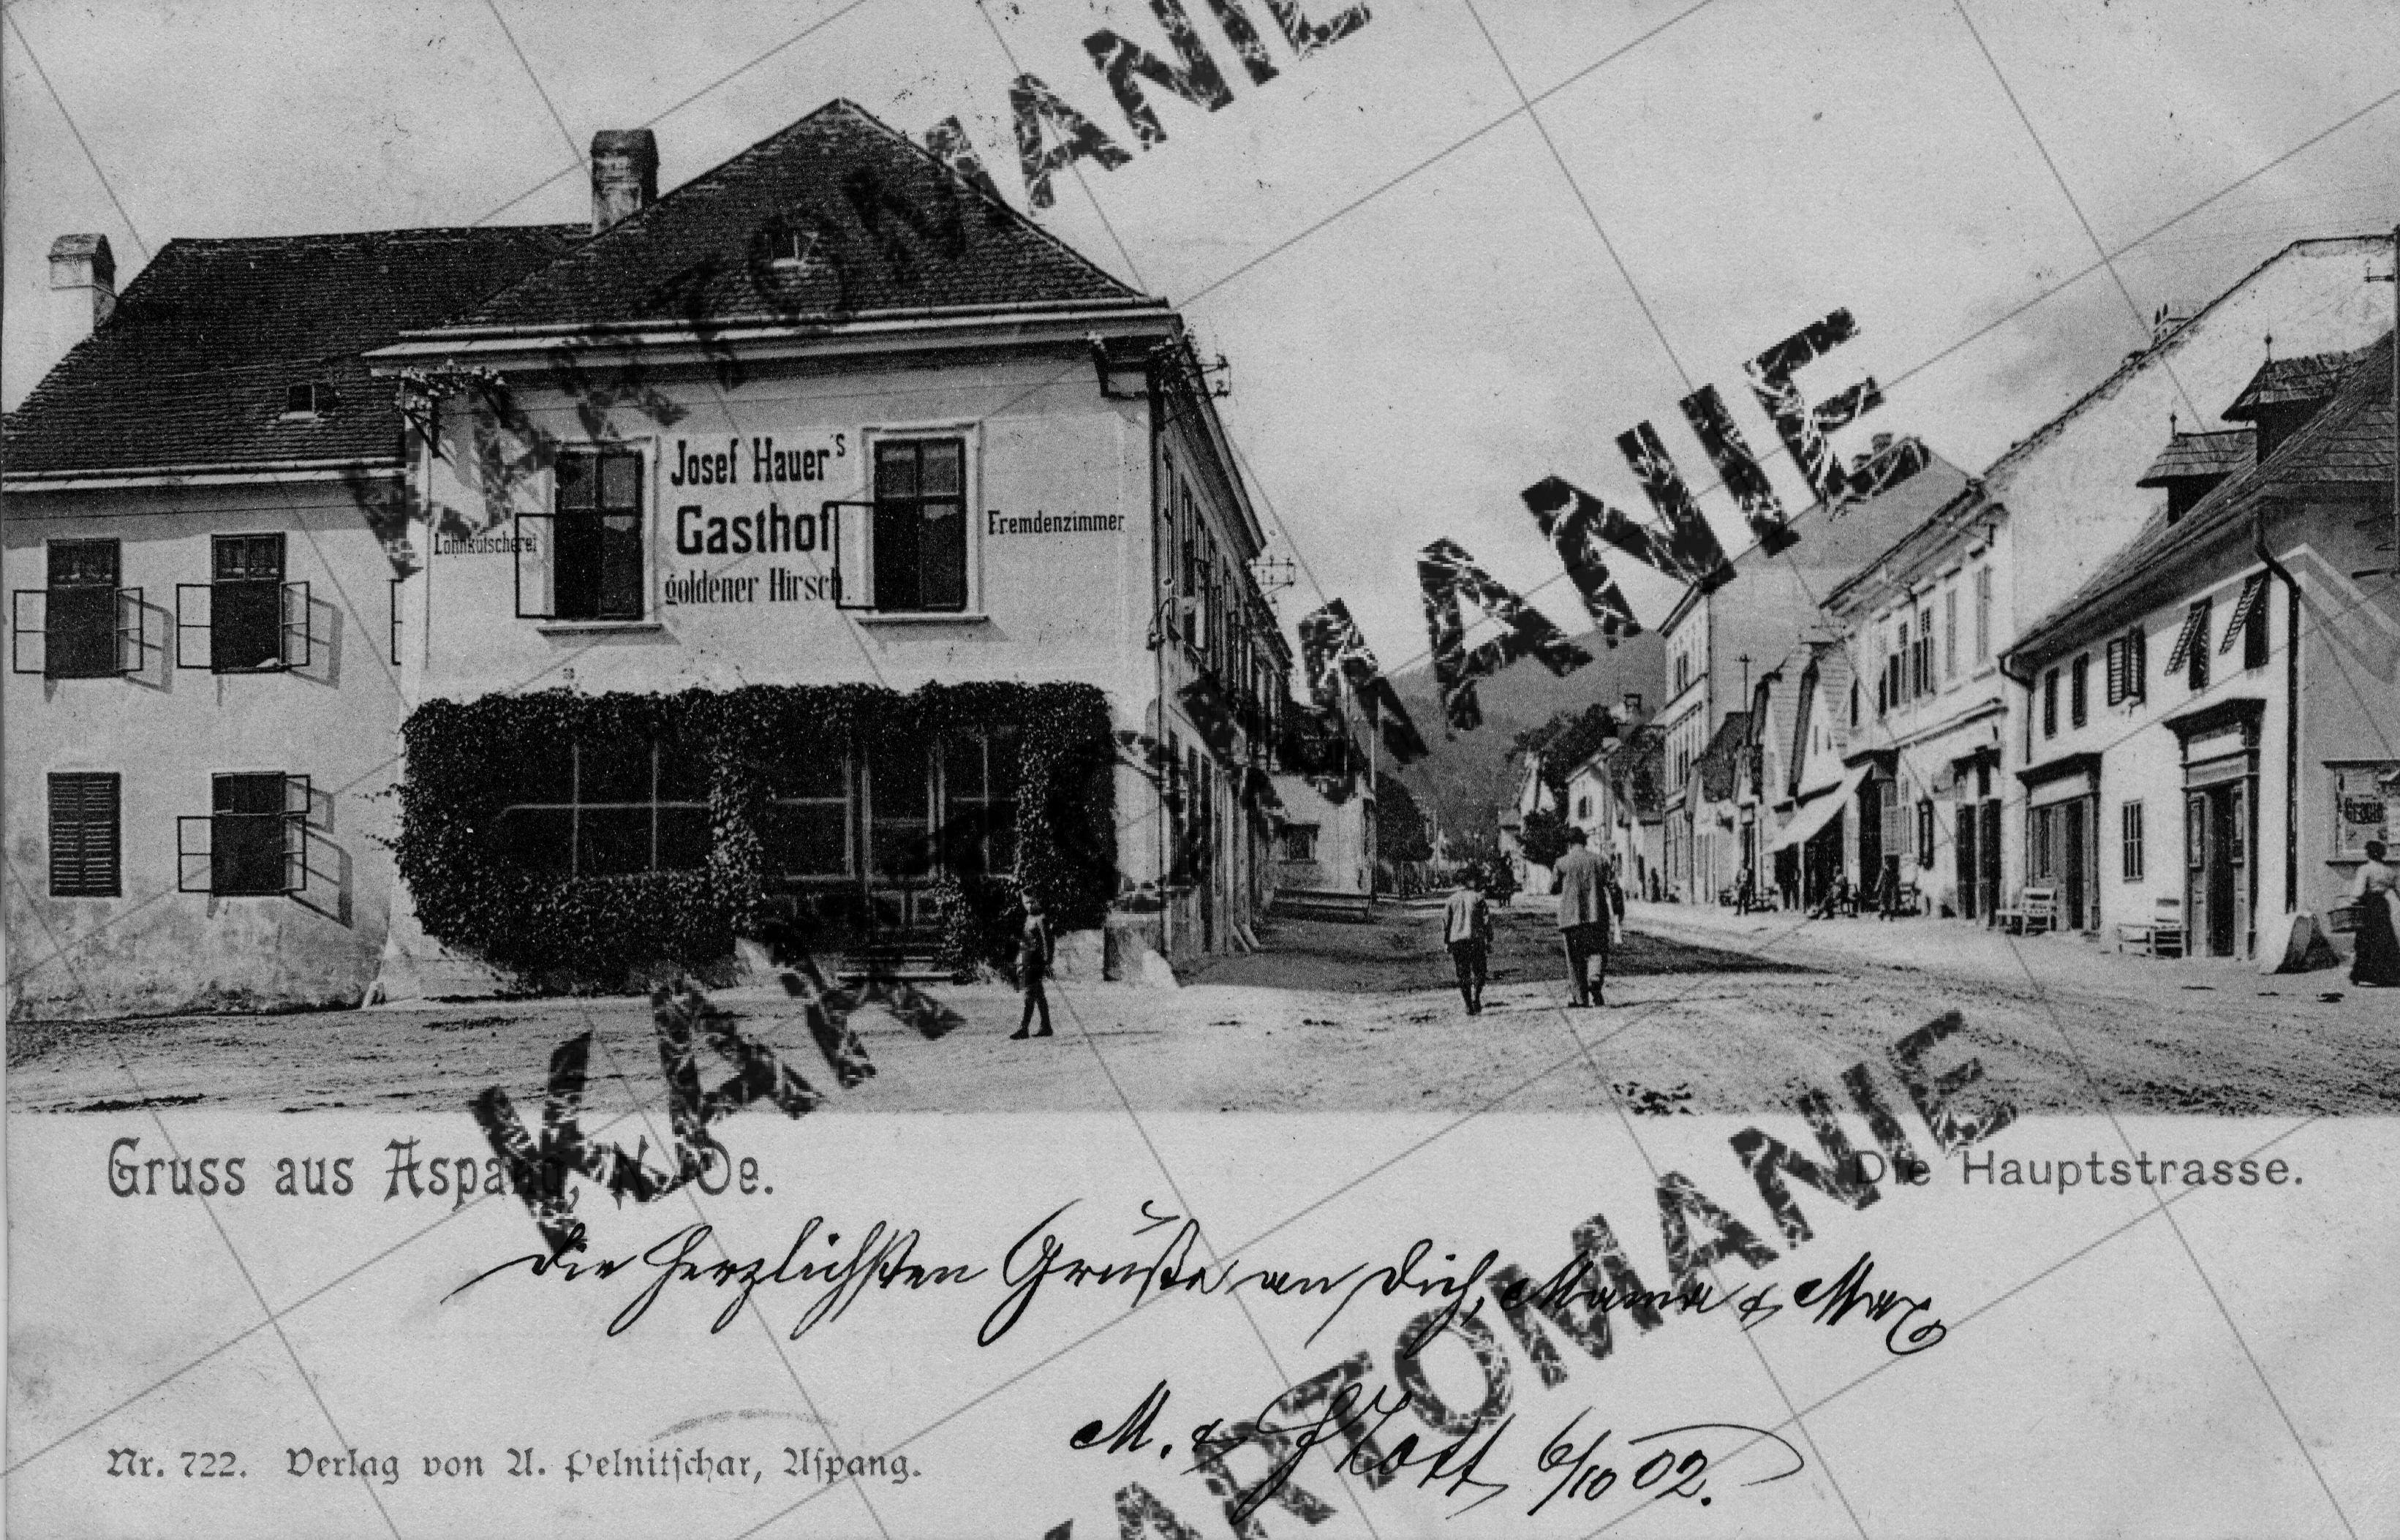 KARTOMANIE
Lohnkutscherei
Josef Hauer's
Gasthof
goldener Hirsch.
Fremdenzimmer
KARTOMANIE
Gruss aus Aspang, N. Oe.
Die Hauptstrasse.
Die herzlichsten Grüße an Dich, Mama & Max
M. &
6/10 02.
Nr. 722. Verlag von A. Pelnitschar, Aspang.
KARTOMANIE